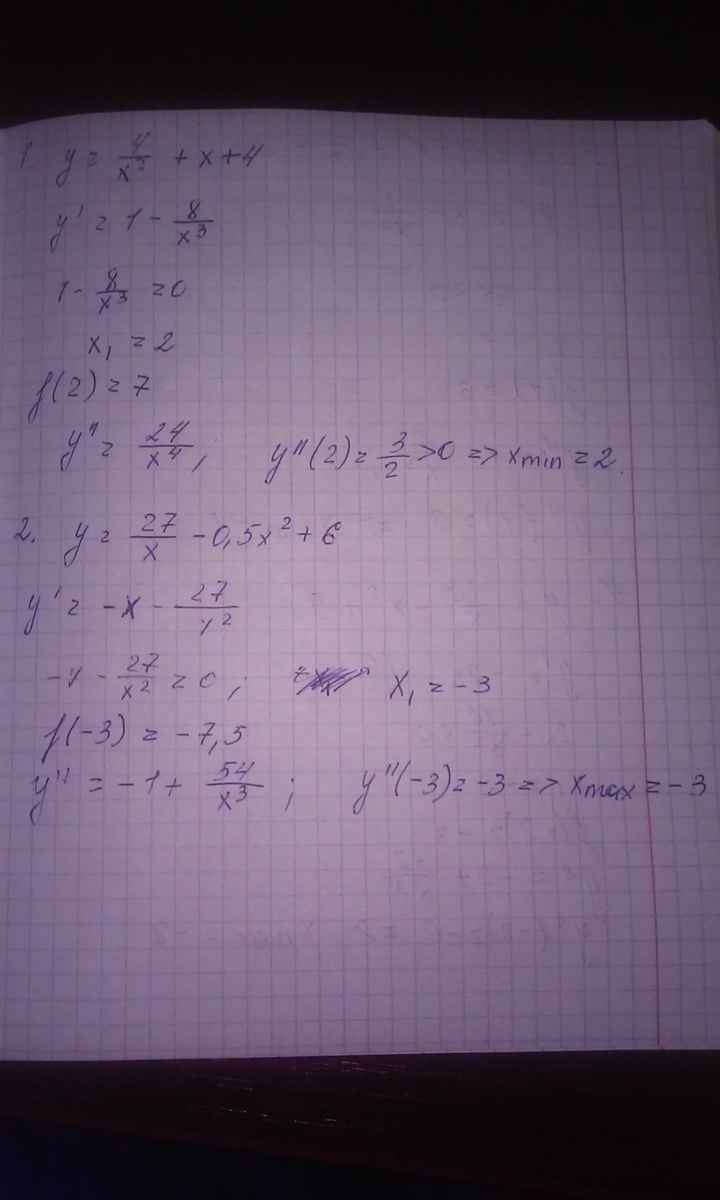 1. y = 4/x² + x + 4
y' = 1 - 8/x³
1 - 8/x³ = 0
x₁ = 2
f(2) = 7
y'' = 24/x⁴ ; y''(2) = 3/2 > 0 => xmin = 2.
2. y = 27/x - 0,5x² + 6
y' = -x - 27/x²
-x - 27/x² = 0 ; x₁ = -3
f(-3) = -7,5
y'' = -1 + 54/x³ ; y''(-3) = -3 => xmax = -3